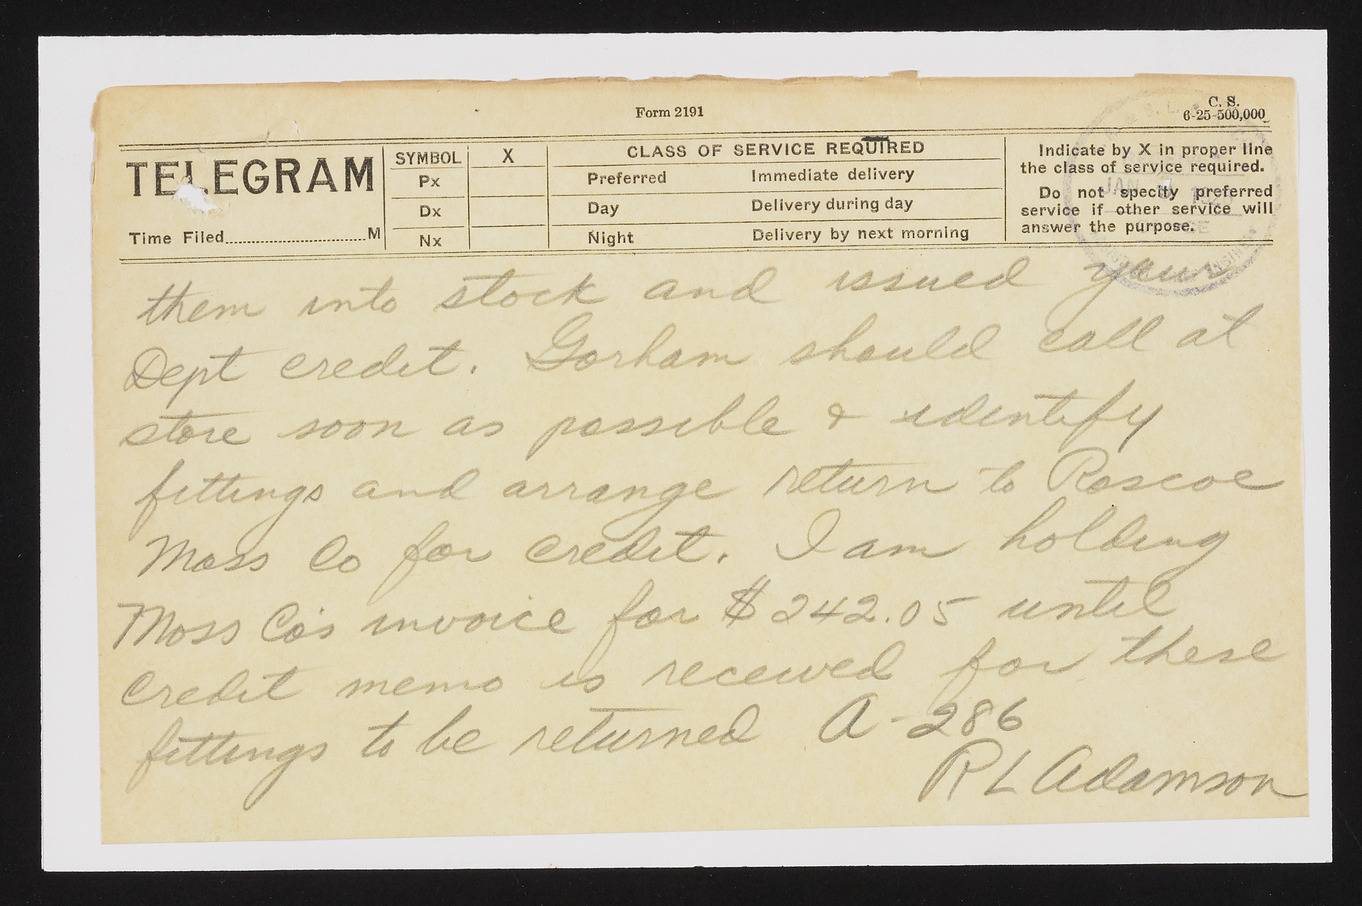 Form 2191
C. S.
6-25-500,000
TELEGRAM
Time Filed M
SYMBOL X CLASS OF SERVICE REQUIRED
Px Preferred Immediate delivery
Dx Day Delivery during day
Nx Night Delivery by next morning
Indicate by X in proper line
the class of service required.
Do not specify preferred
service if other service will
answer the purpose.
JAN
them into stock and issued your
Dept credit. Gorham should call at
store soon as possible & identify
fittings and arrange return to Roscoe
Moss Co for credit. I am holding
Moss Co's invoice for $242.05 until
credit memo is received for these
fittings to be returned A-286
R L Adamson